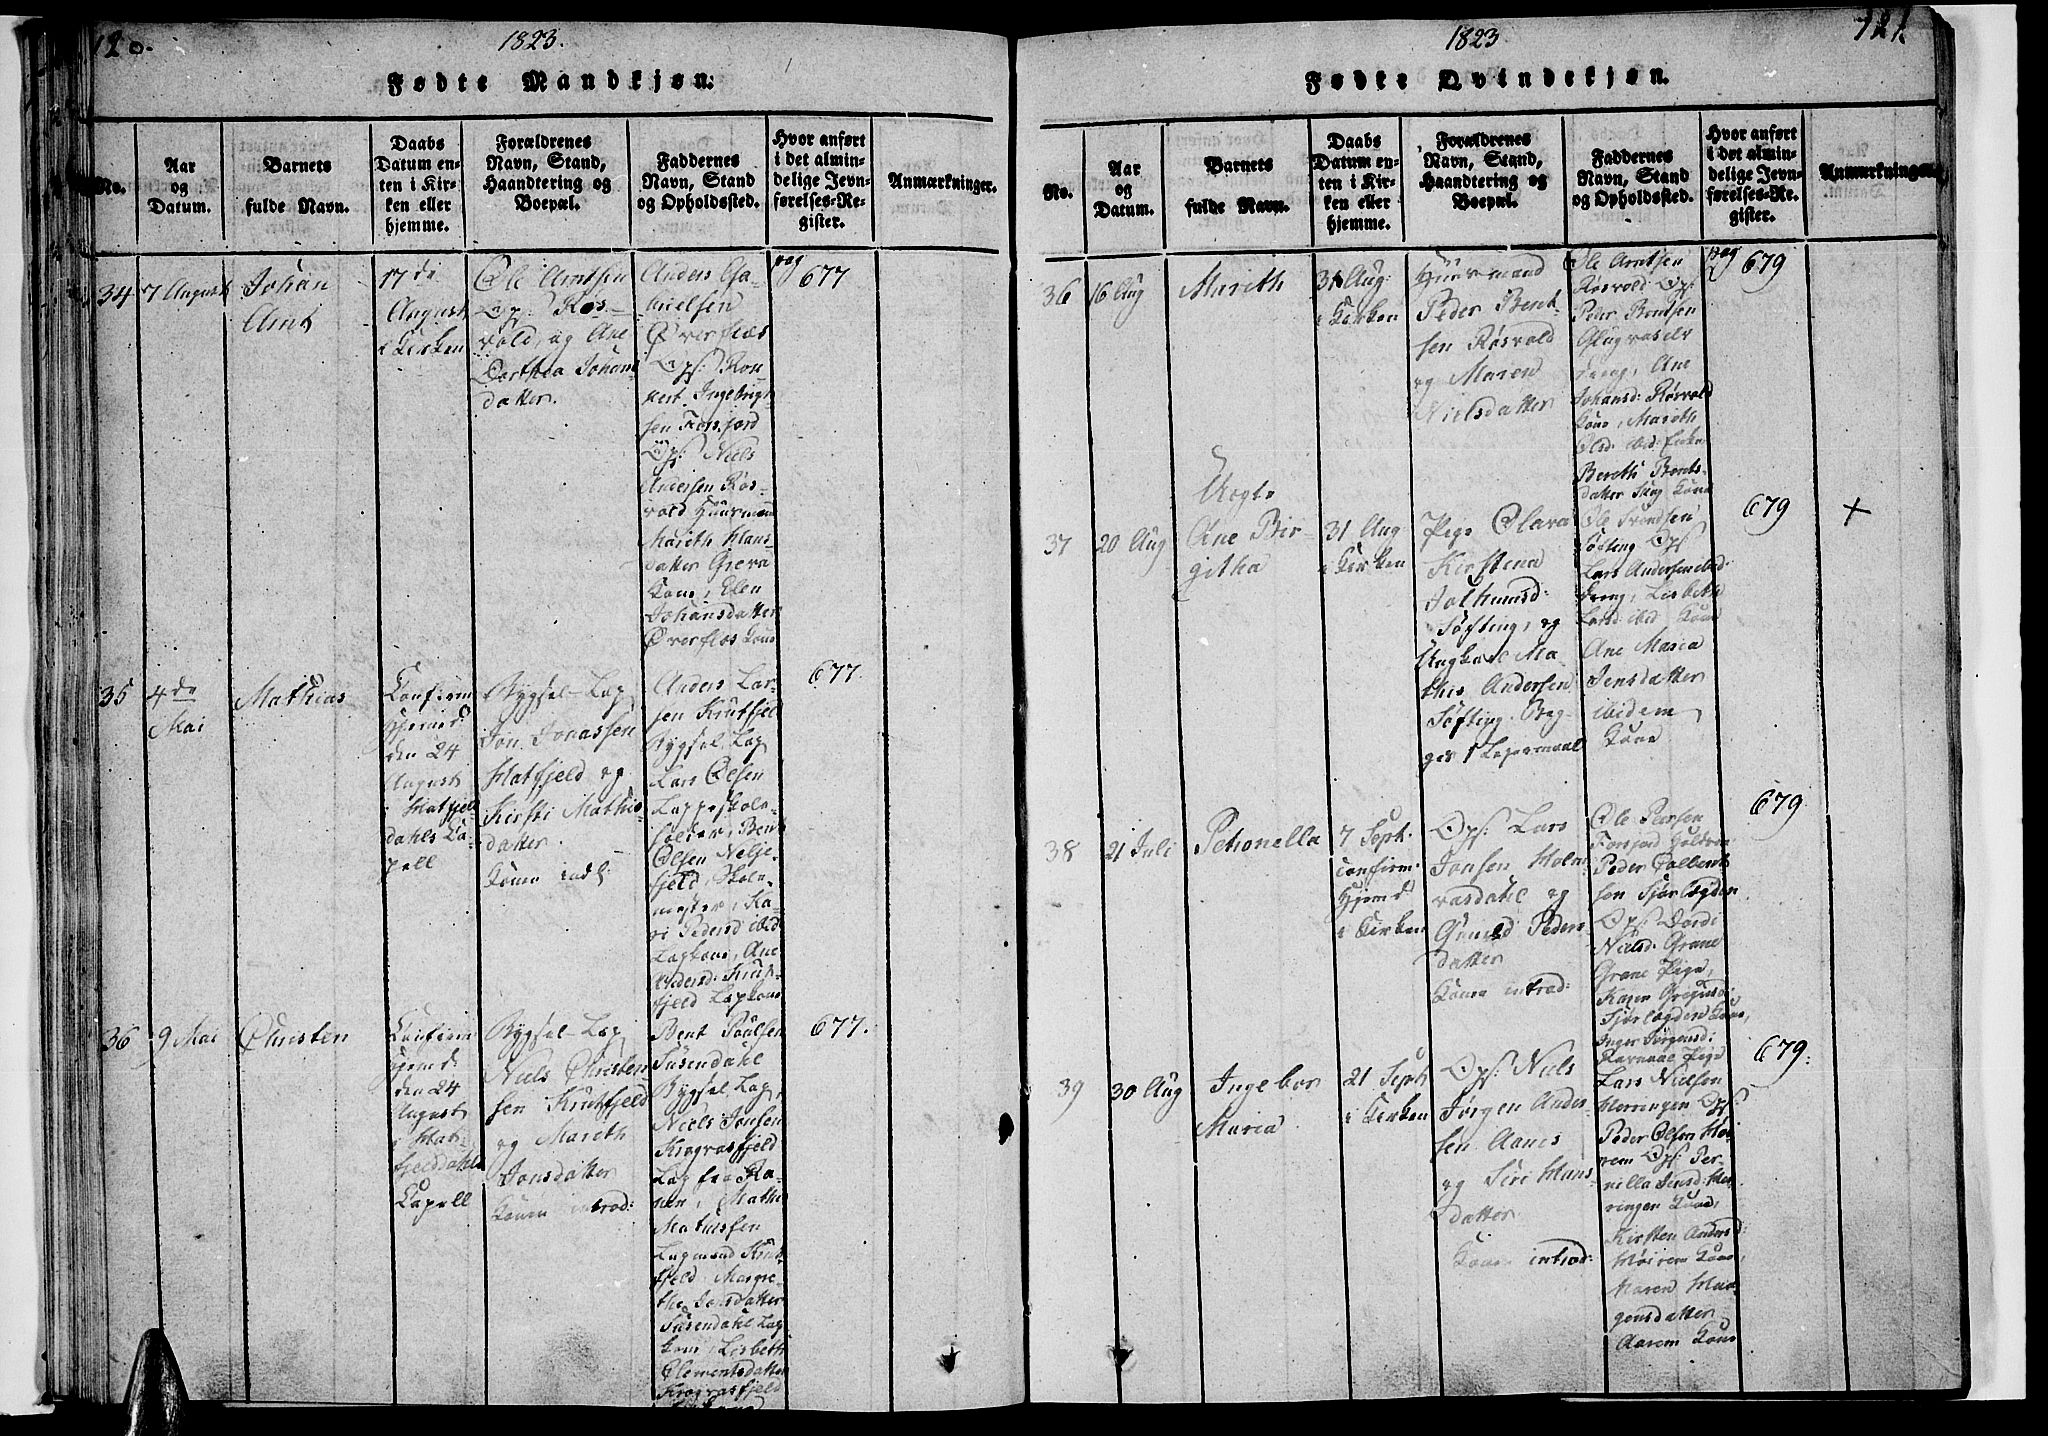 120.
1823.
Fødte Mandkjøn.
No.
Aar
og
Datum.
Barnets
fulde Navn.
Daabs
Datum en-
ten i Kir-
ken eller
hjemme.
Forældrenes
Navn, Stand,
Haandtering og
Boepæl.
Faddernes
Navn, Stand
og Opholdssted.
Hvor anført
i det almin-
delige Jevn-
førelses-Re-
gister.
Anmærkninger.
34
7 August
Johan
Arnt
17 de
August
i Kirken
Ole Arntsen
Ops: Ros-
vold, og Ane
Dorthea Johans
datter.
Anders
Øverflæs
Ops:
Ingebrigt-
sen Forsjord
Ops: Niels
Andersen Ros-
vold Huusmand
Mareth Hans-
datter
Kone, Elen
Johansdatter
Øverflæs Kone
pag
677
35
4 de
Mai
Mathias
Confirm
Hjemd
den 24
August
i Hatfjel
dahls Ca-
pell
Bygsel-Lap
Jon Jonassen
Hatfjeld og
Kirsti Mathis
datter.
Konen indl:
Anders Lar-
sen Krutfjel
Bygsel Lap
Lars Olsen
Lappeskole-
holder, Bent
Olsen
fjeld, Skole-
mester, Ka-
ri Pedersd ibid
Lapkone, Ane
Fjeld Lapkone
677.
36
9 Mai
Christen
Confirm
Hjemd
den 24
August
i Hat-
fjelddahls
Capell
Bygsel-Lap
Niels Christen
sen Krutfjeld
og Mareth
Jonsdatter
Konen introd:
Bent Poulsen
Susendahl
Bygsel Lap,
Niels Jonsen
Krogvasfjeld
Lap fra Ra-
nen, Mathi
Mathissen
Lapmand Krut
fjeld, Margre-
the Jonsdatter
Susendahl Lap
kone, Lisbeth
Clementsdatter
Krogvasfjeld
677.
721.
1823
Fødte Qvindekjøn.
No.
Aar
og
Datum.
Barnets
fulde Navn.
Daabs
Datum en-
ten i Kir-
ken eller
hjemme.
Forældrenes
Navn, Stand,
Haandtering og
Boepæl.
Faddernes
Navn, Stand
og Opholdssted.
Hvor anført
i det almin-
delige Jevn-
førelses-Re-
gister.
Anmærkninger.
36
16 Aug
Mareth
31 Aug:
i Kirken
Huusmand
Peder Bent-
sen Rosvold
og Maren
Nielsdatter
Ole Arntsen
Rosvold Ops:
Peder Bentsen
dreng, Ane
Johansd: Rosvold
Kone, Mareth
Olsd: ibid: Enke
Bereth Bents-
datter Kone
pag
679
37
20 Aug
Uægte
Ane Bir-
githa
31 Aug
i Kirken
Pige Olava
Kirstena
Søfting, og
Ungkarl Ma-
this Andersen
Søfting. Beg-
ges 1 Leiermaal
Ole Svendsen
Søfting Ops:
Lars Andersen ibid:
dreng, Lisbeth
Larsd: ibid Kone
Ane Maria
Jensdatter
ibidem
Kone
679
+
38
21 Juli
Petronella
7 Sept.
Confirm
Hjemd
i Kirken
Ops: Lars
Jonsen Holm
vasdahl og
Gunild Peders
datter
Konen introd:
Ole Persen
Forsjord
Peder
sen Fjørlægden
Ops: Dordi
Nielsd: Grane
Grane Pige,
Karen
Fjørlægden Kone,
Inger Jørgensd:
Pige
679.
39
30 Aug
Ingebor
Maria
21 Sept
i Kirken
Ops: Niels
Jørgen Ander-
sen Aanes
og Siri Hans
datter.
Konen introd:
Lars Nielsen
Herringen Ops:
Peder Olsen
Ops: Per-
nilla Jensd: Her-
ringen Kone,
Kirsten Andersd:
Kone,
Maren
gensdatter
Kone
679.